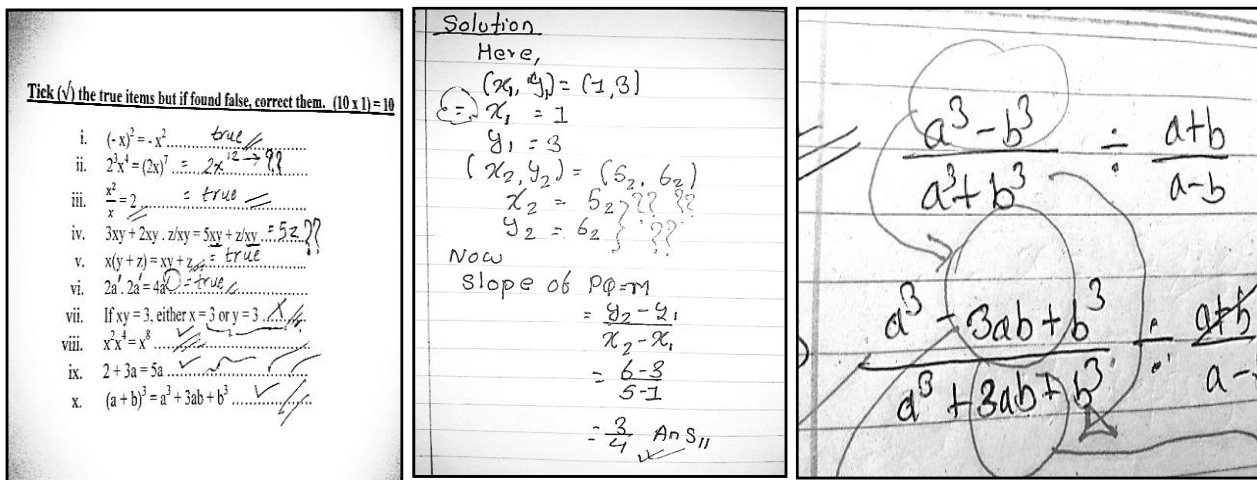 Tick (√) the true items but if found false, correct them. (10 x 1) = 10
i. (-x)² = -x² true
ii. 2³x⁴ = (2x)⁷ = 2x¹² → ??
iii. x²/x = 2 = true
iv. 3xy + 2xy . z/xy = 5xy + z/xy = 5z ??
v. x(y + z) = xy + z = true
vi. 2a¹. 2a¹ = 4a¹ = true
vii. If xy = 3, either x = 3 or y = 3 X
viii. x²x⁴ = x⁸ ✓
ix. 2 + 3a = 5a ✓
x. (a + b)³ = a³ + 3ab + b³ ✓
Solution
Here,
(x₁, y₁) = (1,3)
⇒ x₁ = 1
y₁ = 3
(x₂, y₂) = (5₂, 6₂)
x₂ = 5₂ } ?? ??
y₂ = 6₂ } ??
Now
Slope of PQ = m
= y₂ - y₁ / x₂ - x₁
= 6-3 / 5-1
= 3/4 Ans
a³ - b³ / a³ + b³ ÷ a+b / a-b
a³ - 3ab + b³ / a³ + 3ab + b³ ÷ a+b / a-